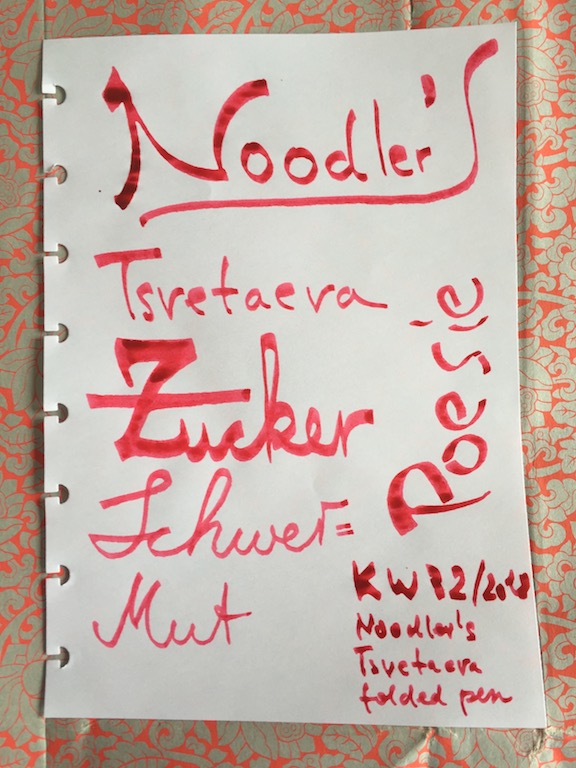 Noodler's
Tsvetaeva
Zucker
Schwer=
Mut
Poesie
KW 12/2018
Noodler's
Tsvetaeva
folded pen